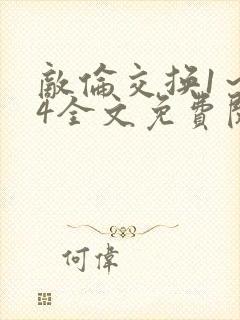 敵倫交換1～
4全文免費閱
何偉